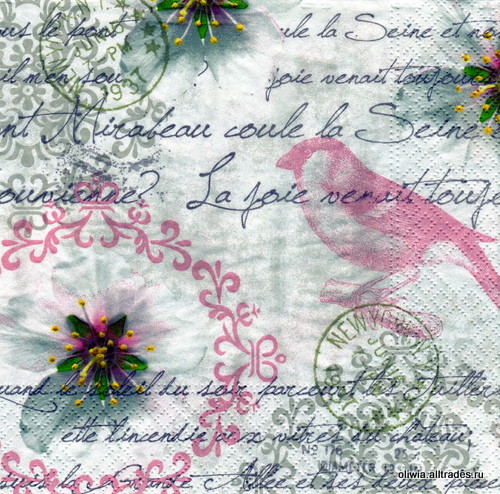 ous le pont
ule la Seine et no
PM
1937
il m'en sou ?
joie venait toujour
nt Mirabeau coule la Seine
ouvienne? La joie venait toujo
NEW YORK
quand le soleil du soir parcourt les
elle t'incendie vitres du château,
No 176
suis la Grande Allée et ses
oliwia.alltrades.ru